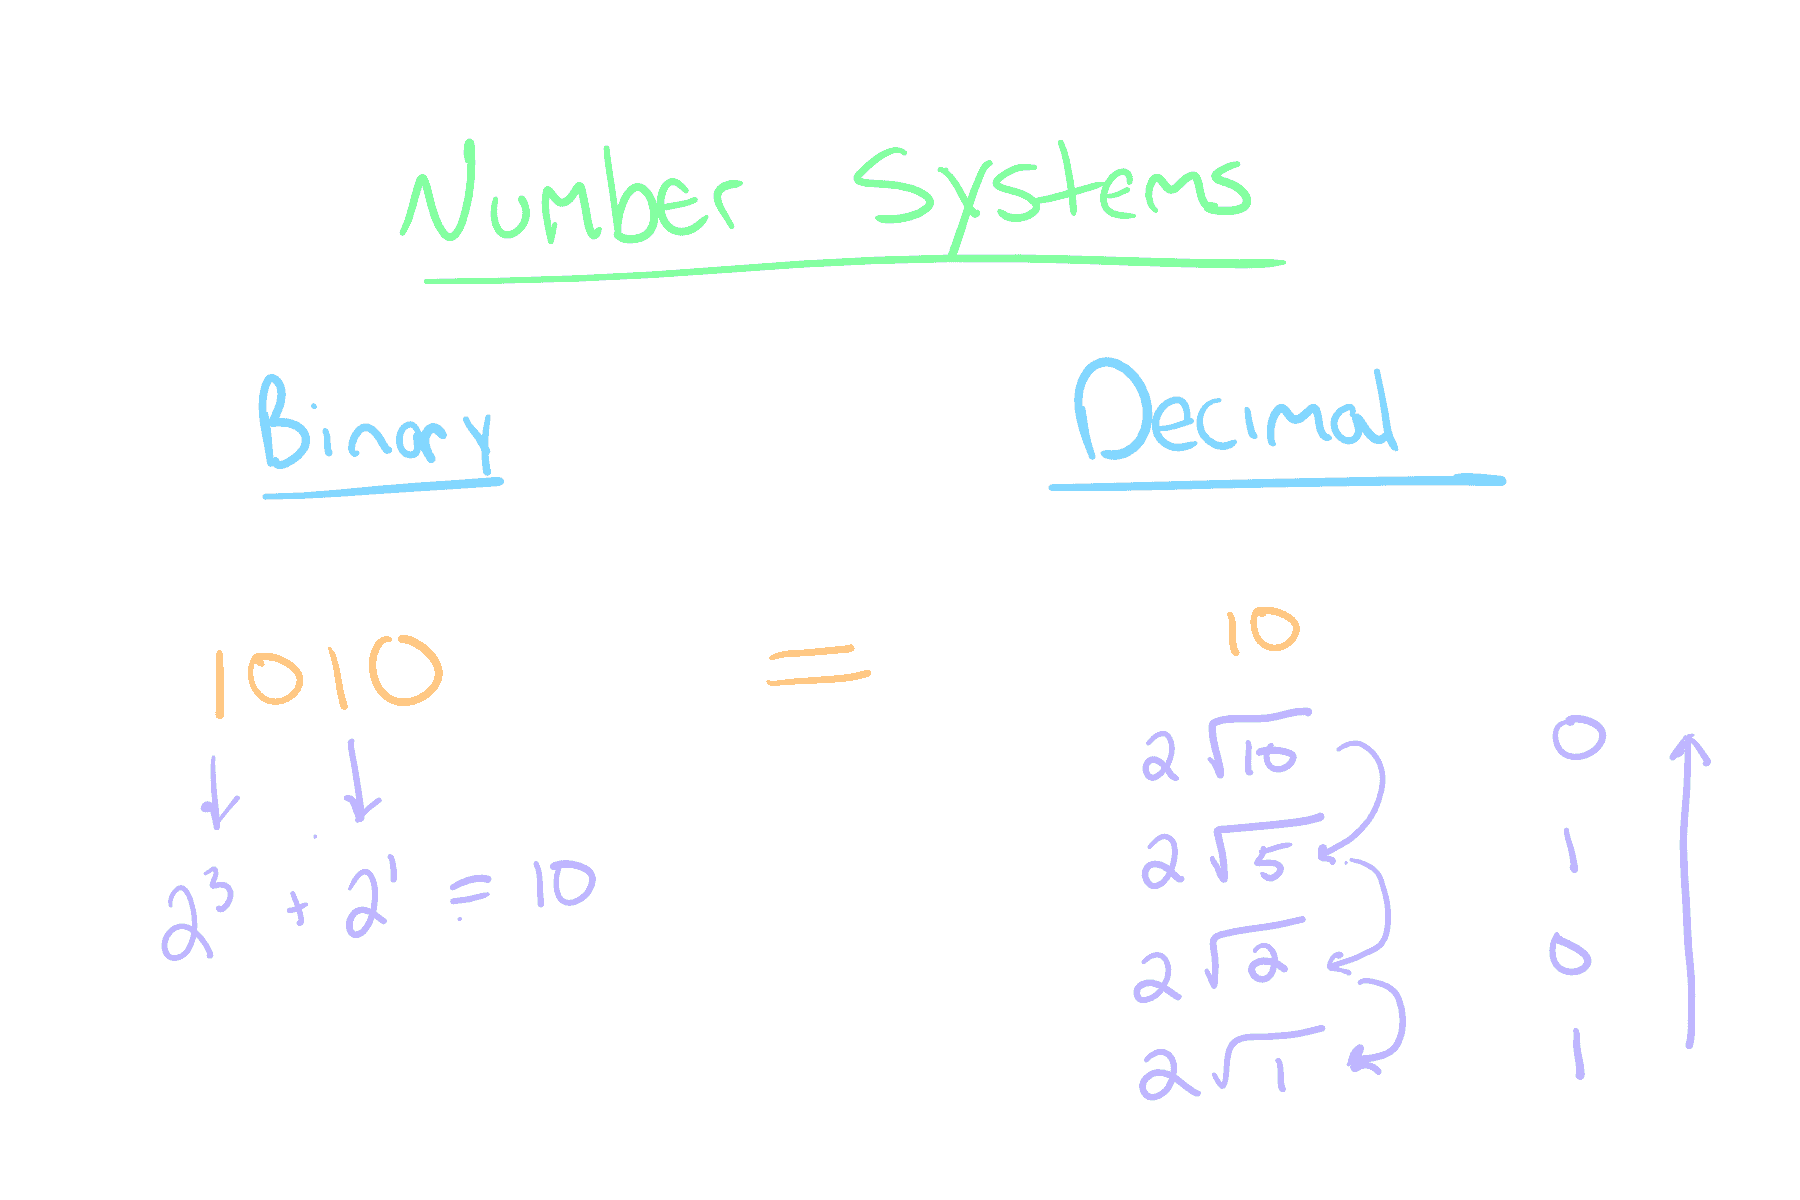 Number Systems
Binary
Decimal
1010 = 10
2³ + 2¹ = 10
2 √10 0
2 √5 1
2 √2 0
2 √1 1